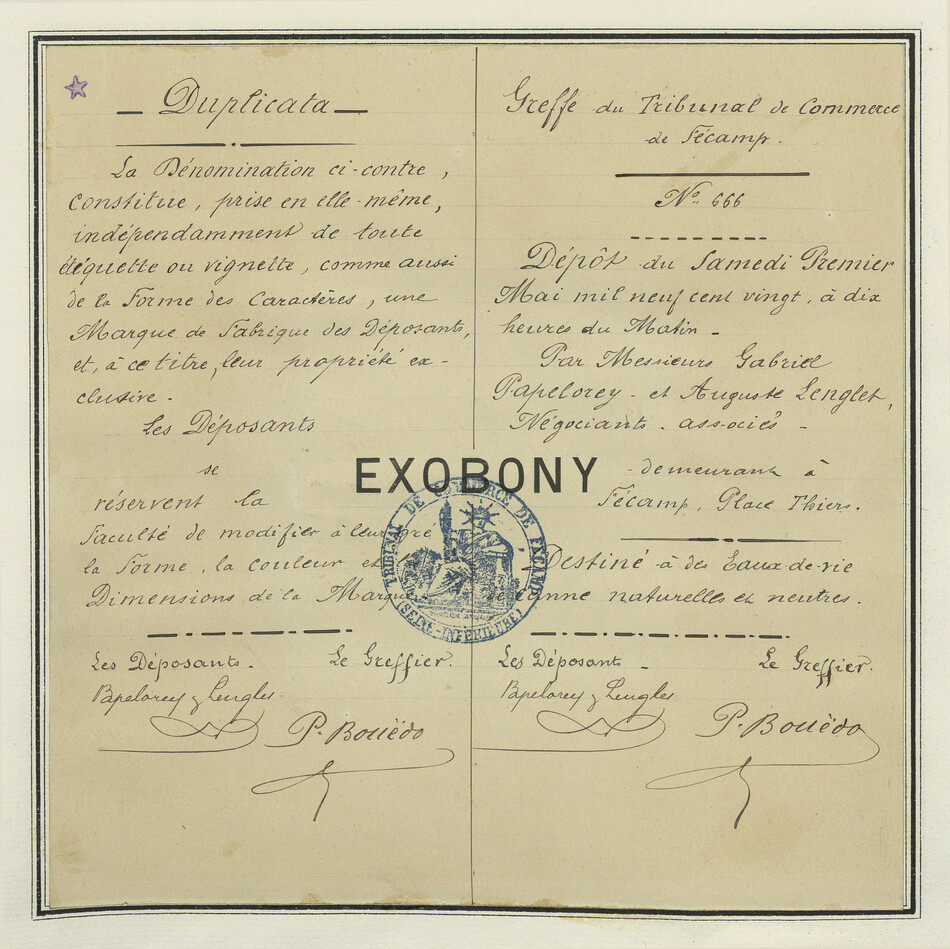 Duplicata
La Dénomination ci-contre,
constitue, prise en elle-même,
indépendamment de toute
étiquette ou vignette, comme aussi
de la Forme des Caractères, une
Marque de Fabrique des Déposants,
et, à ce titre, leur propriété ex-
clusive.
Les Déposants
se
réservent la
Faculté de modifier à leur gré
la Forme, la couleur et
Dimensions de la Marque.
Les Déposants. Le Greffier.
Papelorey & Lenglet
P. Bouëdo
Greffe du Tribunal de Commerce
de Fécamp.
No. 666
Dépôt du Samedi Premier
Mai mil neuf cent vingt, à dix
heures du Matin -
Par Messieurs Gabriel
Papelorey - et Auguste Lenglet,
Négociants - associés -
demeurant à
Fécamp, Place Thiers.
Destiné à des Eaux-de-vie
de canne naturelles et neutres.
Les Déposants - Le Greffier.
Papelorey & Lenglet
P. Bouëdo
EXOBONY
TRIBUNAL DE COMMERCE DE FÉCAMP
(SEINE-INFÉRIEURE)